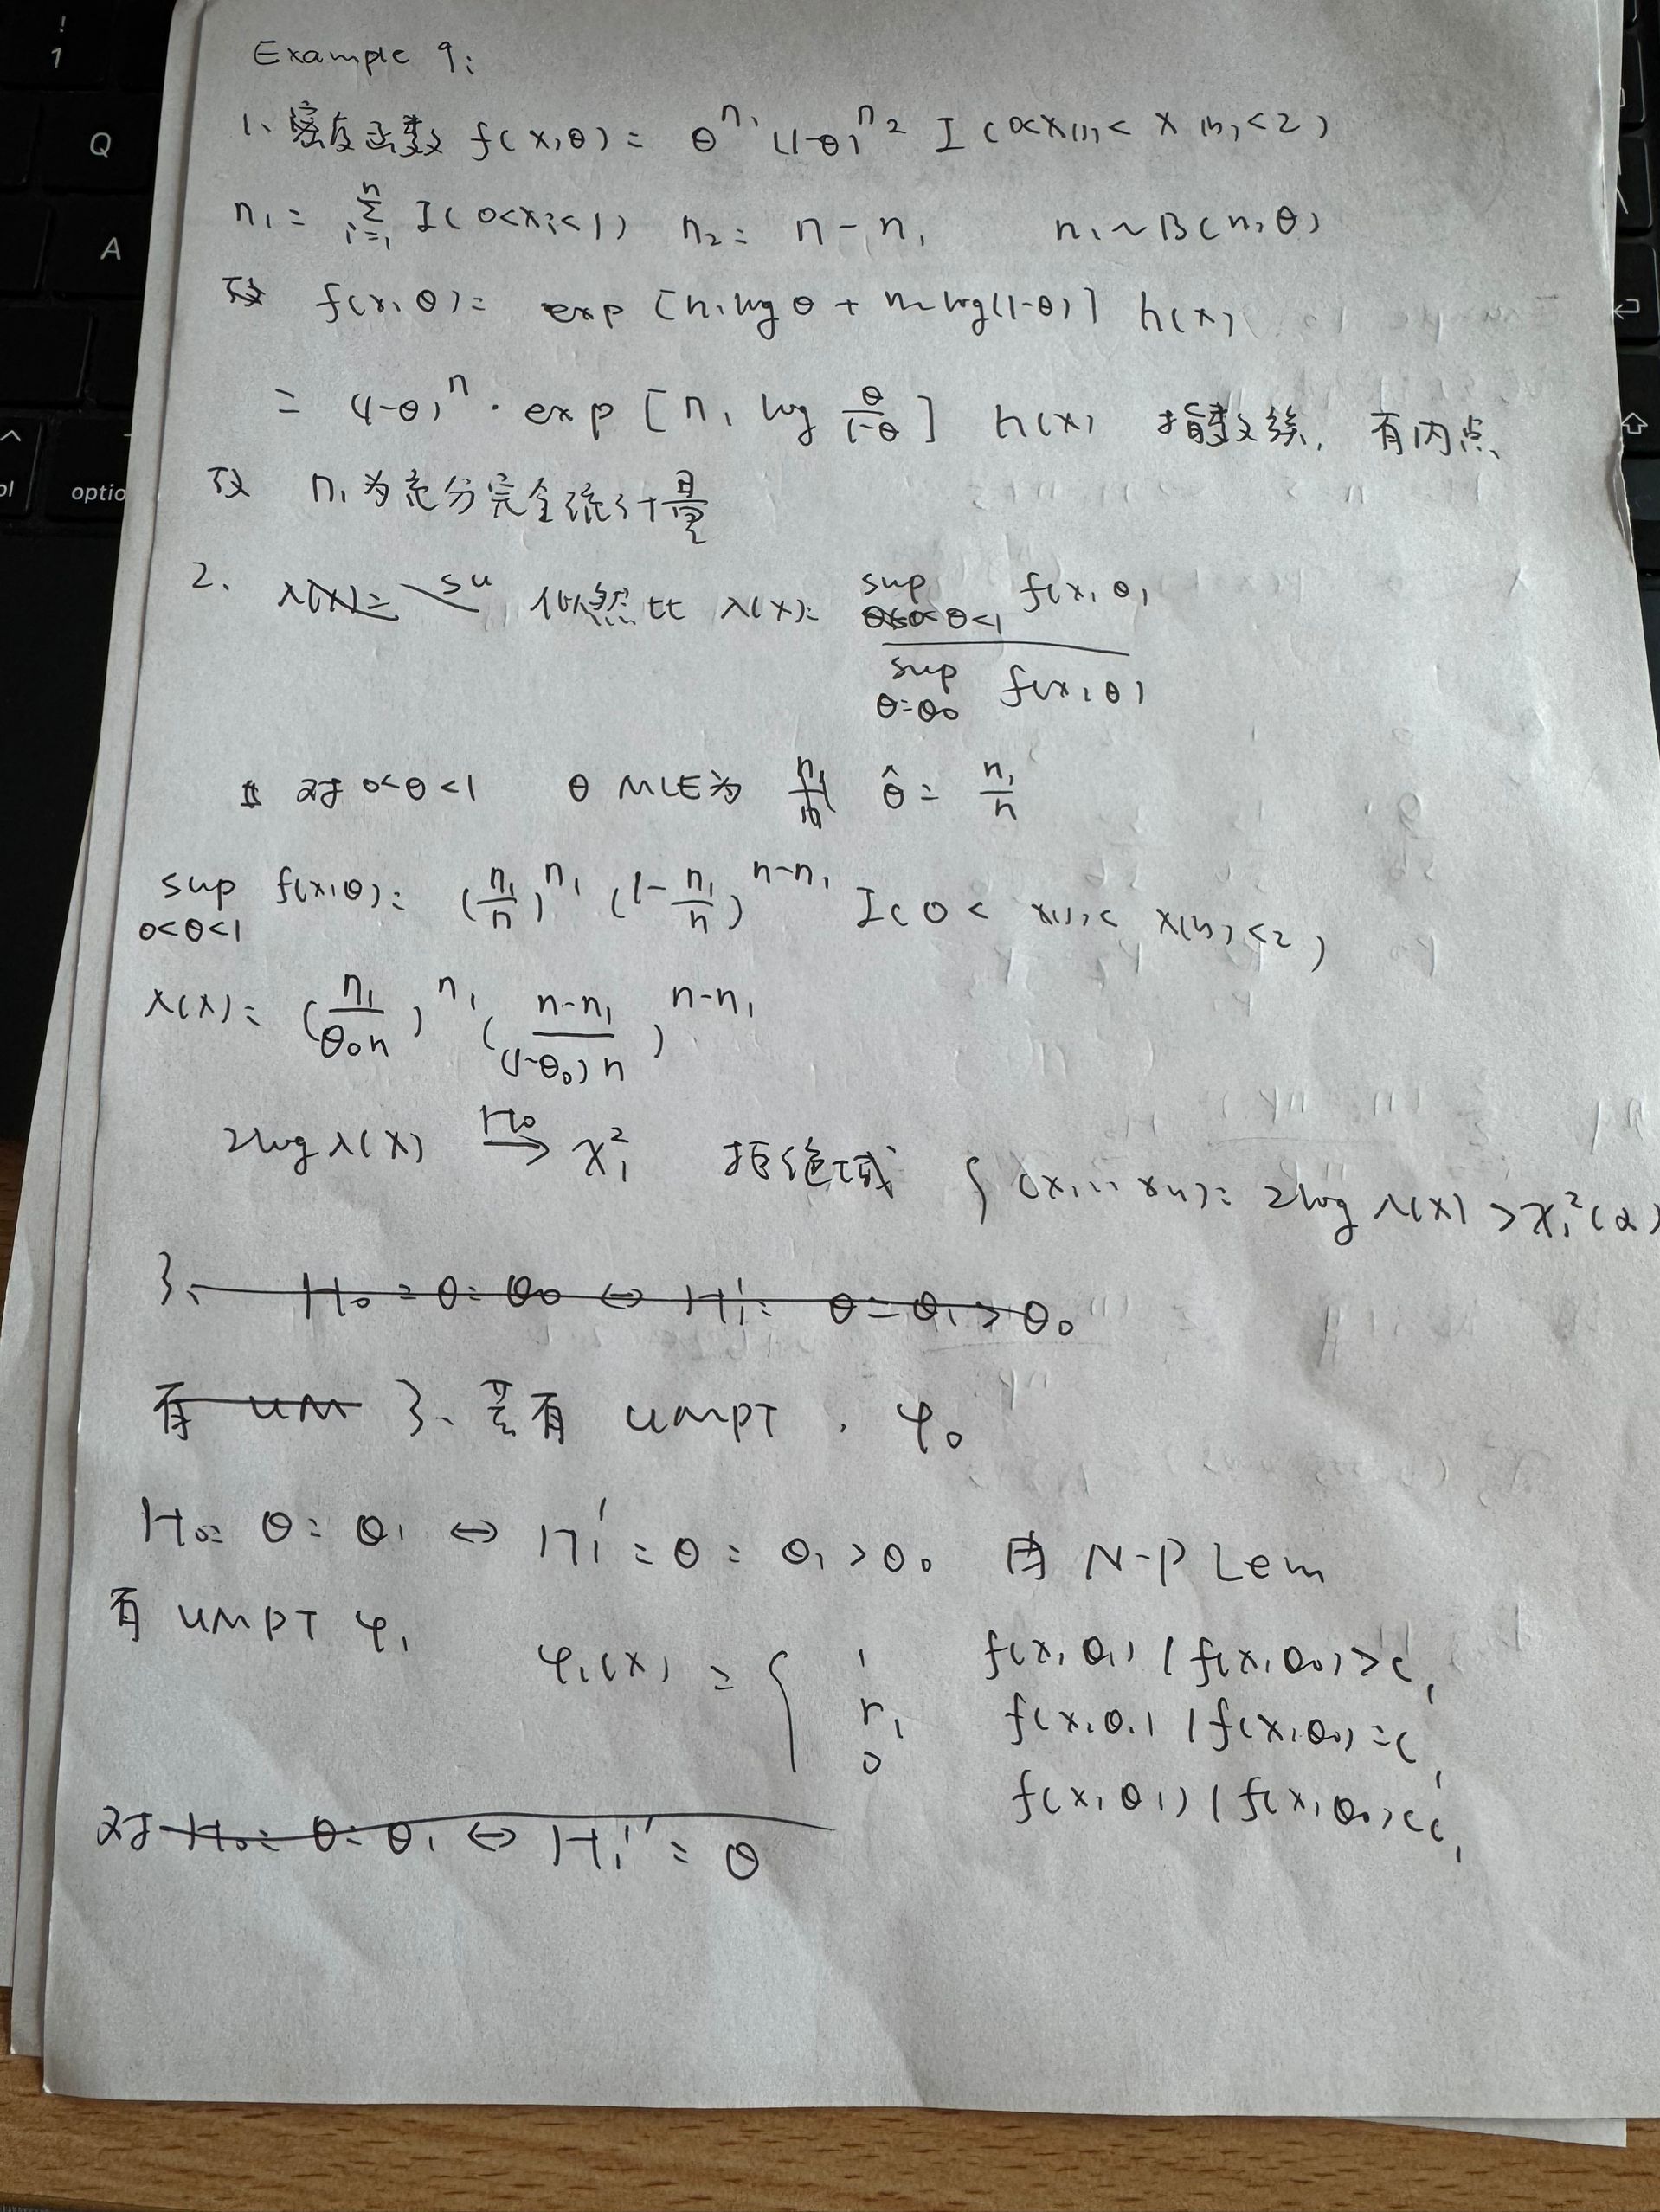 Example 9:
1、密度函数 f(x,θ) = θ^{n₁} (1-θ)^{n₂} I(0<x₍₁₎< x₍ₙ₎<2)
n₁ = Σ_{i=1}^{n} I(0<xᵢ<1) n₂ = n - n₁ n₁ ~ B(n,θ)
故 f(x,θ) = exp [n₁ log θ + n₂ log(1-θ)] h(x)
= (1-θ)^n · exp [n₁ log θ/(1-θ)] h(x) 指数族, 有内点
故 n₁ 为充分完全统计量
2. 似然比 λ(x) = sup_{0<θ<1} f(x,θ) / sup_{θ=θ₀} f(x,θ)
对 0<θ<1 θ MLE为 θ̂ = n₁/n
sup_{0<θ<1} f(x,θ) = (n₁/n)^{n₁} (1-n₁/n)^{n-n₁} I(0< x₍₁₎< x₍ₙ₎<2)
λ(x) = (n₁/(θ₀n))^{n₁} ((n-n₁)/((1-θ₀)n))^{n-n₁}
2log λ(x) →^{H₀} χ₁² 拒绝域 {(x₁…xₙ): 2log λ(x) > χ₁²(α)
3、 H₀ = θ = θ₀ ⇔ H₁': θ = θ₁ > θ₀
有 UM 3、若有 UMPT , φ₀
H₀: θ = θ₁ ⇔ H₁' : θ = θ₁ > θ₀ 由 N-P Lem
有 UMPT φ₁ φ₁(x) = { 1 f(x,θ₁) / f(x,θ₀) > c₁
r₁ f(x,θ₁) / f(x,θ₀) = c₁
0 f(x,θ₁) / f(x,θ₀) < c₁
对 H₀: θ = θ₁ ⇔ H₁'' : θ
!
1
Q
A
optio